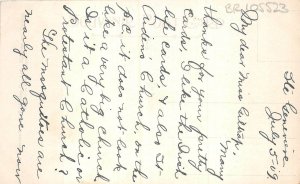 July 5-09
My dear Miss
Many
thanks for your pretty
cards, I like the Irish
life cards, & also St
Church, on the
P.C. it does not look
like a very big church
Is it a Catholic or
Protestant Church?
The mosquitoes are
nearly all gone now